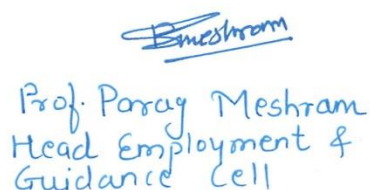 Bmeshram
Prof. Parag Meshram
Head Employment &
Guidance Cell